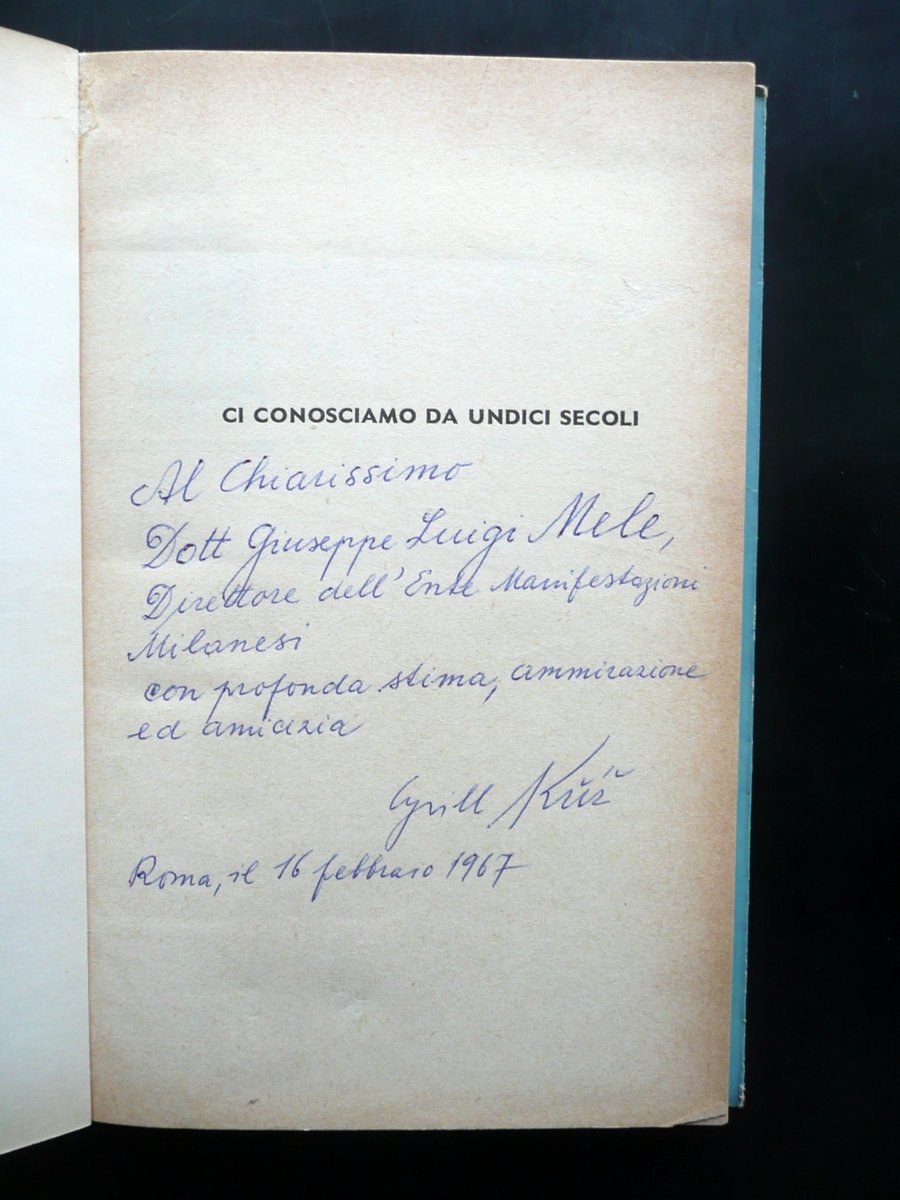 CI CONOSCIAMO DA UNDICI SECOLI
Al Chiarissimo
Dott Giuseppe Luigi Mele,
Direttore dell'Ente Manifestazioni
Milanesi
con profonda stima, ammirazione
ed amicizia
Cyrill Kříž
Roma, il 16 febbraio 1967